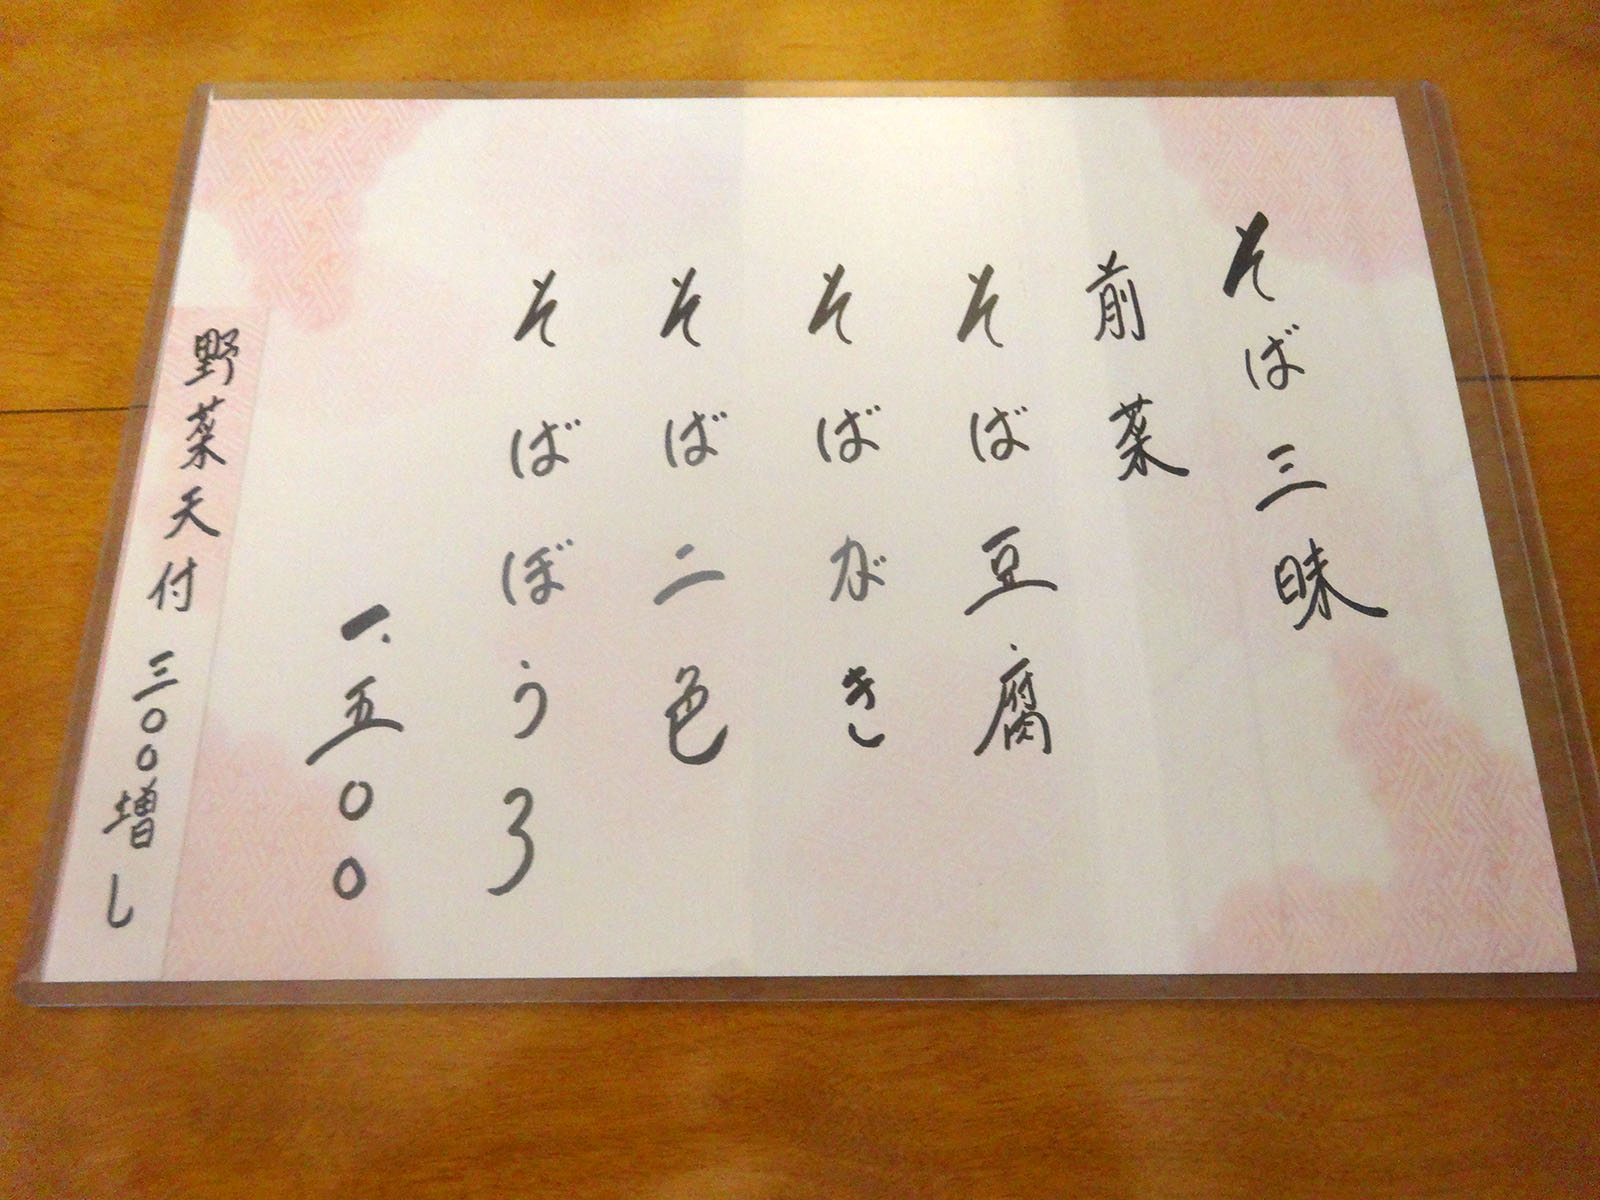 そば三昧
前菜
そば豆腐
そばがき
そば二色
そばぼうろ
一、五〇〇
野菜天付 三〇〇増し